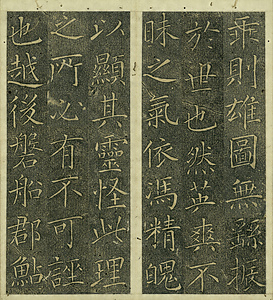 乘則雄圖無繇振
於世也然英爽不
昧之氣依馮精魄
以顯其靈怪此理
之所必有不可誣
也越後磐船郡鮎